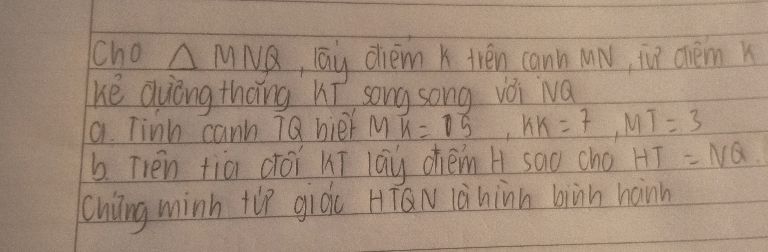 Cho △ MNQ, lấy điểm K trên cạnh MN, từ điểm K
kẻ đường thẳng KT song song với NQ
a. Tính cạnh TQ biết MK = 15, KK = 7, MT = 3
b. Trên tia đối KT lấy điểm H sao cho HT = NQ.
Chứng minh tứ giác HTQN là hình bình hành